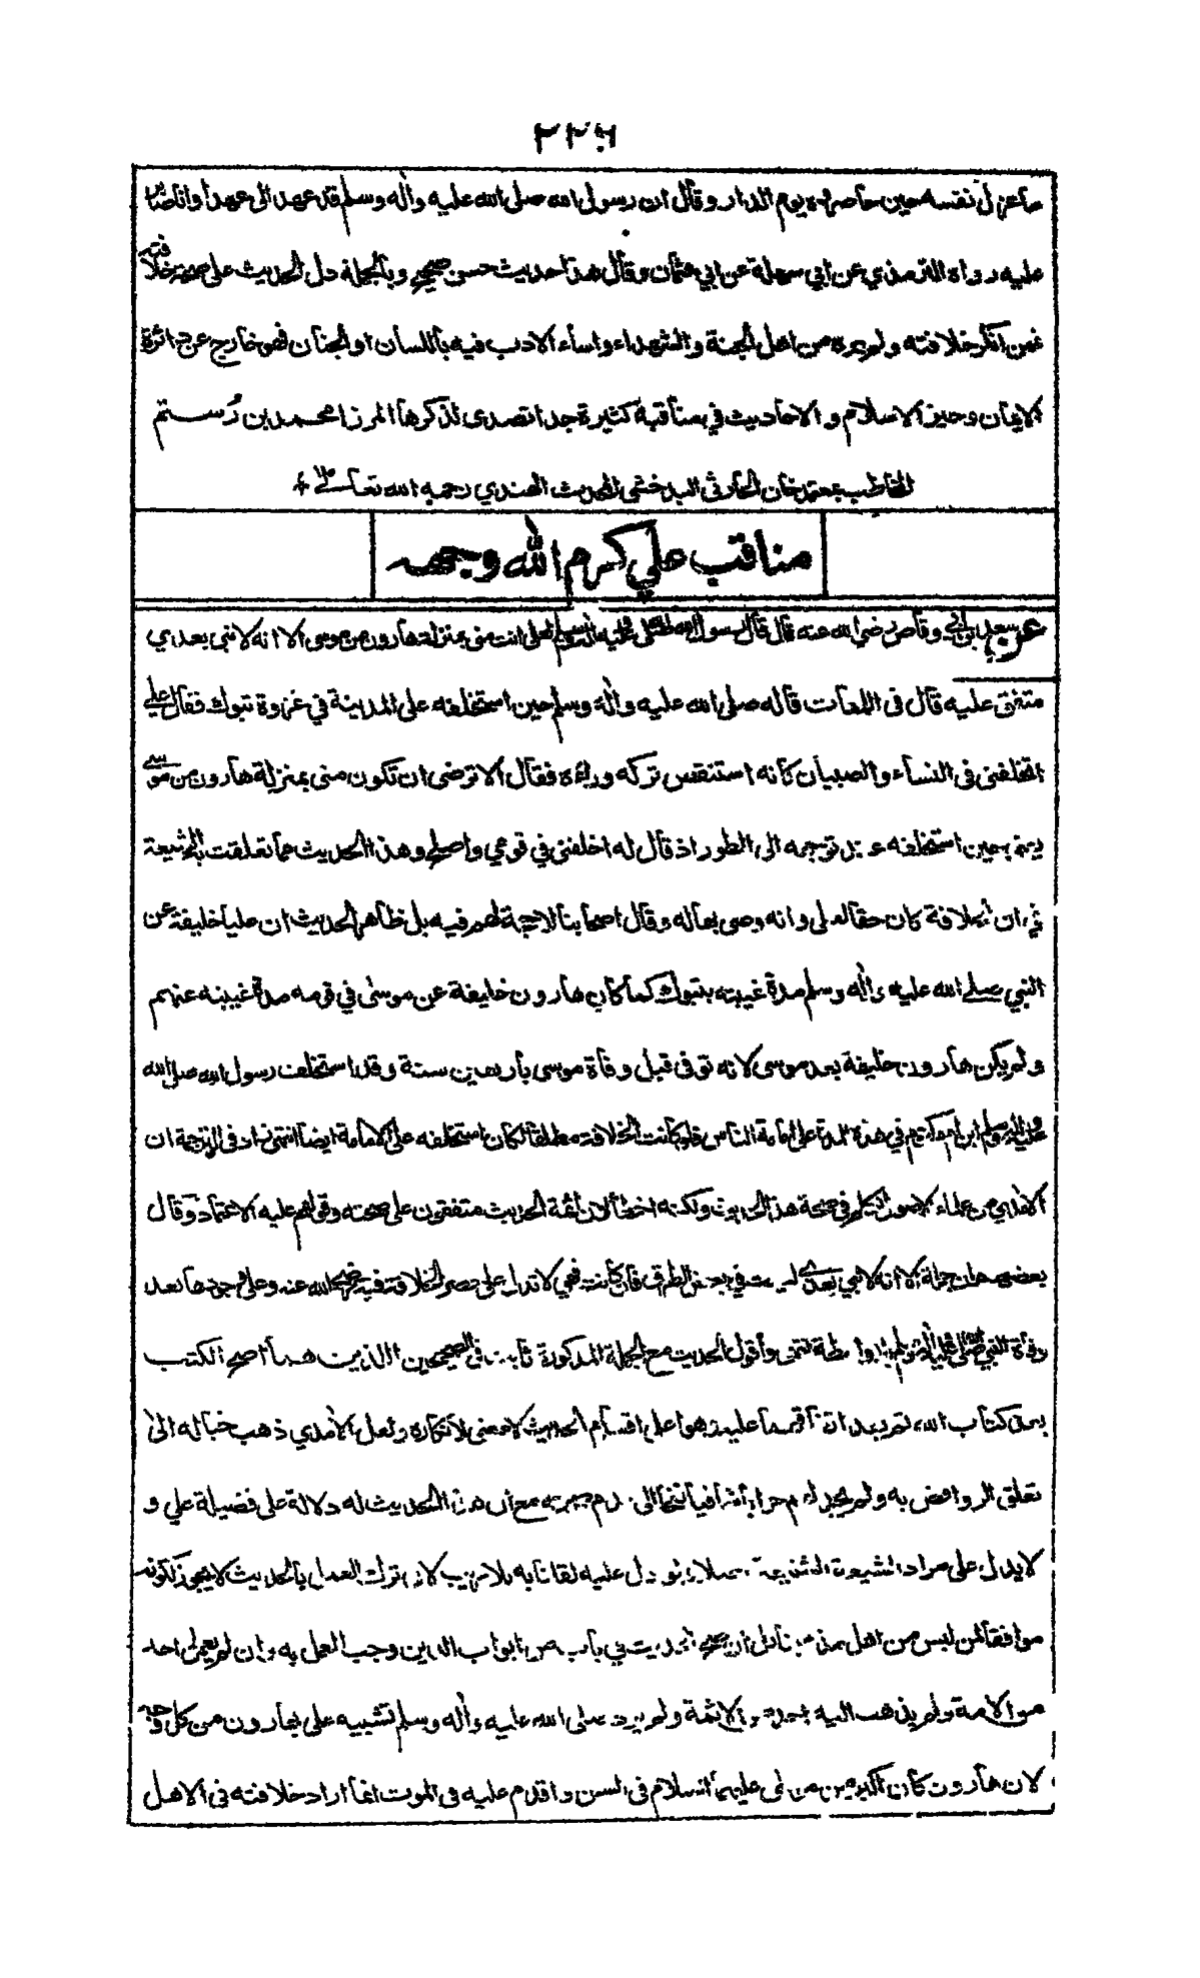 ٢٢٦
ما عزل نفسه حين حاصروه يوم الدار وقال ان رسول الله صلى الله عليه واله وسلم قد عهد الى عهدا وانا صابر
عليه رواه الترمذي عن ابي سهلة عن ابي عثمان وقال هذا حديث حسن صحيح وبالجملة دل الحديث على صحة خلافته
فمن انكر خلافته ولم يره من اهل الجنة والشهداء واساء الادب فيه باللسان او الجنان فهو خارج عن دائرة
الايمان وحيز الاسلام والاحاديث في مناقبه كثيرة جدا تصدى لذكرها المرزا محمد بن رستم
المخاطب بمعتمد خان الحارثي البدخشي المحدث الهندي رحمه الله تعالى
مناقب علي كرم الله وجهه
عن سعد بن ابي وقاص رضي الله عنه قال قال رسول الله صلى الله عليه واله وسلم لعلى انت منى بمنزلة هارون من موسى الا انه لا نبى بعدي
متفق عليه قال فى اللمعات قاله صلى الله عليه واله وسلم حين استخلفه على المدينة في غزوة تبوك فقال علي
اتخلفنى فى النساء والصبيان كانه استنقص تركه وراءه فقال الا ترضى ان تكون منى بمنزلة هارون من موسى
يعنى حين استخلفه عند توجهه الى الطور اذ قال له اخلفنى في قومي واصلح وهذا الحديث مما تعلقت به الشيعة
في ان الخلافة كان حقا لعلى وانه وصى بها له وقال اصحابنا لا حجة لهم فيه بل ظاهر الحديث ان عليا خليفة عن
النبي صلى الله عليه واله وسلم مدة غيبته بتبوك كما كان هارون خليفة عن موسى في قومه مدة غيبته عنهم
ولم يكن هارون خليفة بعد موسى لانه توفى قبل وفاة موسى باربعين سنة وقد استخلف رسول الله صلى الله
عليه واله وسلم ابن ام مكتوم في هذه المدة على امامة الناس فلو كانت الخلافة مطلقا لكان استخلفه على الامامة ايضا انتهى زاد فى الترجمة ان
الامدي من علماء الاصول تكلم في صحة هذا الحديث ولكنه اخطا لان ائمة الحديث متفقون على صحته وقولهم عليه الاعتماد وقال
بعضهم ان جملة الا انه لا نبي بعدي ليست في بعض الطرق فان كانت فهي لا تدل على حصر الخلافة فيه رضي الله عنه وعلى وجودها بعد
وفاة النبي صلى الله عليه واله وسلم بلا واسطة انتهى واقول الحديث مع الجملة المذكورة ثابت فى الصحيحين الذين هما اصح الكتب
بعد كتاب الله ثم بعد اتفاقهما عليه وهو اعلى اقسام الحديث لا معنى لانكاره ولعل الامدي ذهب خياله الى
تعلق الروافض به ولم يجد له جوابا شافيا فنحا الى عدم صحته مع ان هذا الحديث له دلالة على فضيلة علي و
لا يدل على مراد الشيعة الشنيعة اصلا ولو دل عليه لقلنا به بلا ريب لان ترك العمل بالحديث لا يجوز لكونه
موافقا لمن ليس من اهل مذهبنا بل ان صح الحديث في باب من ابواب الدين وجب العمل به وان لم يعمل احد
من الامة ولم يذهب اليه احد من الائمة ولم يرد صلى الله عليه واله وسلم تشبيه على بهارون من كل وجه
لان هارون كان اكبر من موسى عليهما السلام فى السن واقدم عليه فى الموت انما اراد خلافته فى الاهل